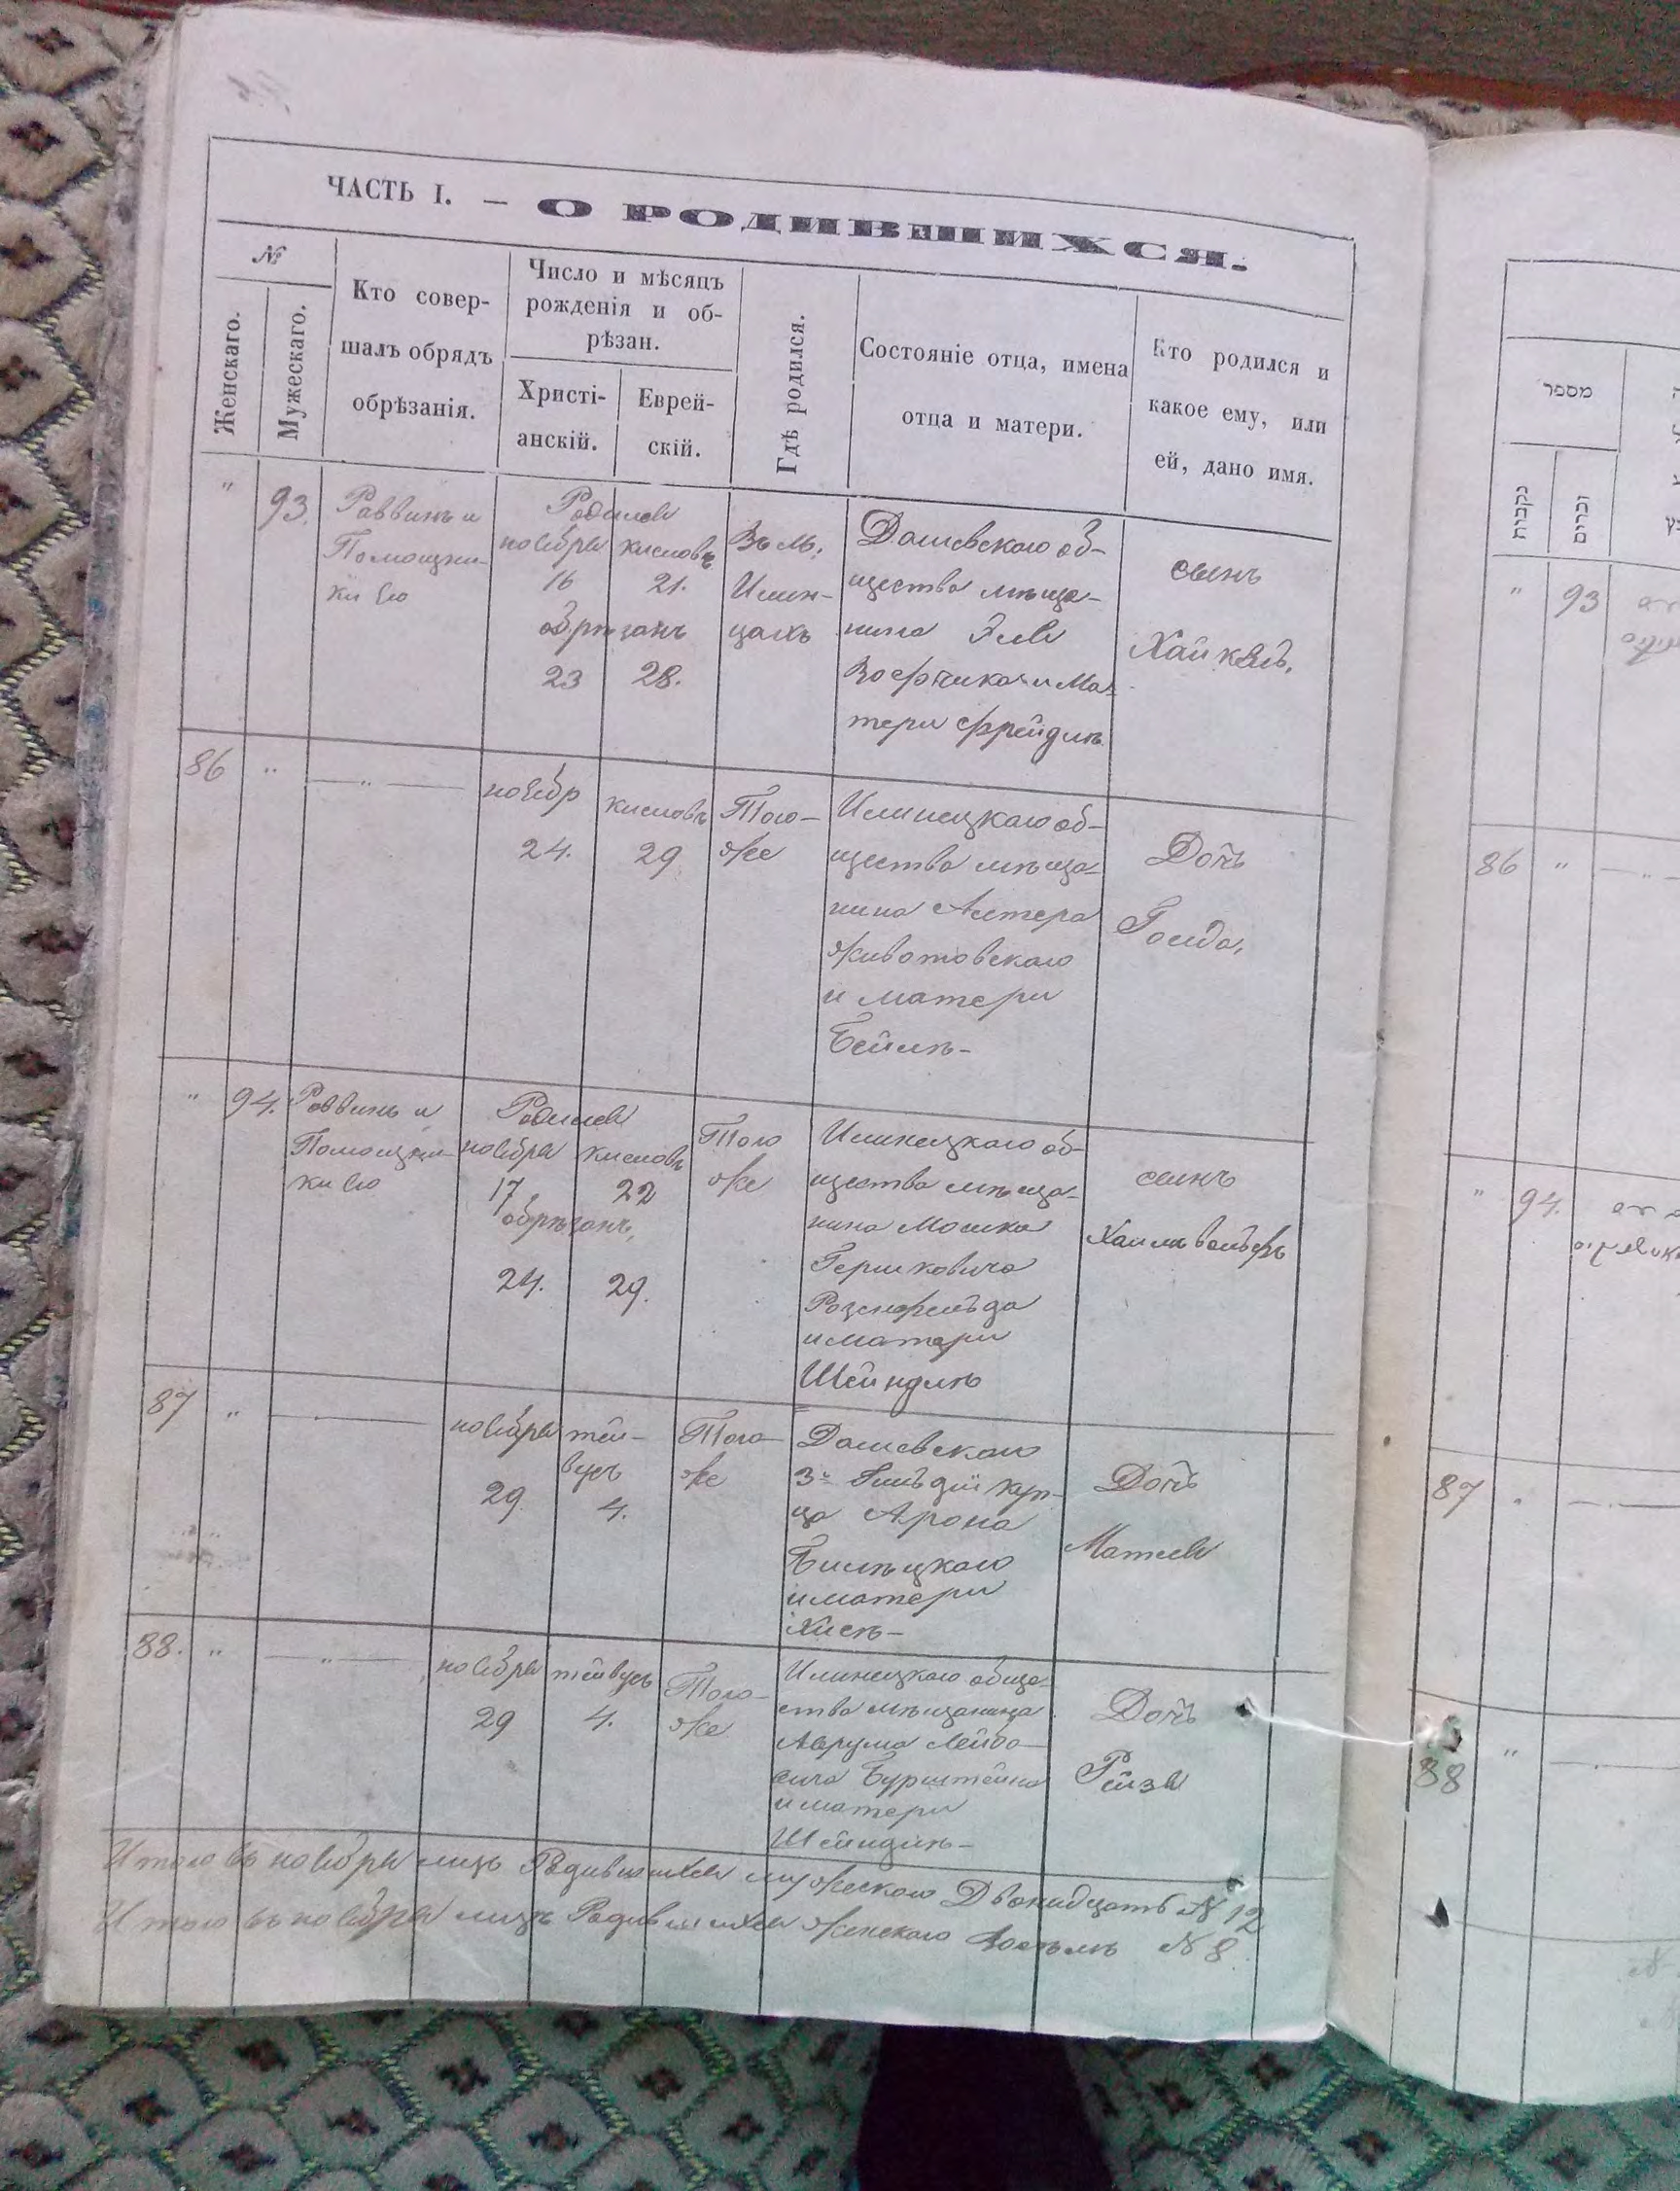 ЧАСТЬ I. — О РОДИВШИХСЯ.
№
Женскаго.
Мужескаго.
Кто совер-
шалъ обрядъ
обрѣзанія.
Число и мѣсяцъ
рожденія и об-
рѣзан.
Христі-
анскій.
Еврей-
скій.
Гдѣ родился.
Состояніе отца, имена
отца и матери.
Кто родился и
какое ему, или
ей, дано имя.
" 93.
Раввинъ и
Помощни-
ки его
Родился
ноября кисловъ
16 21.
обрѣзанъ
23 28.
Въ м.
Илин-
цахъ
Дашевскаго об-
щества мѣща-
нина Эля
и Ма-
тери Фрейдлѣ
сынъ
Хайкель.
86 "
— " —
ноябр кисловъ
24. 29
Того-
же
Илинецкаго об-
щества мѣща-
нина Алтера
Животовскаго
и матери
Бейлѣ-
Дочь
Голда.
" 94.
Раввинъ и
Помощни-
ки его
Родился
ноября кисловъ
17 22
обрѣзанъ
24. 29.
Того
же
Илинецкаго об-
щества мѣща-
нина Мошка
Гершковича
Розенфельда
и матери
Шейндлѣ
сынъ
87 "
ноября тей-
вусъ
29 4.
Того-
же
Дашевскаго
3й Гильдіи куп-
ца Арона
Билѣцкаго
и матери
Дочь
Матля
88. "
— " —
ноября тейвусъ
29 4.
Того-
же
Илинецкаго обще-
ства мѣщанина
Аврума Лейбо-
вича Бурштейна
и матери
Шейндлѣ-
Дочь
Рейзя
Итого въ ноябрѣ лицъ Родившихся мужескаго Двенадцать № 12
Итого въ ноябрѣ лицъ Родившихся женскаго Восемь № 8.
מספר
נקבות
זכרים
" 93
86 "
" 94.
87
88 "